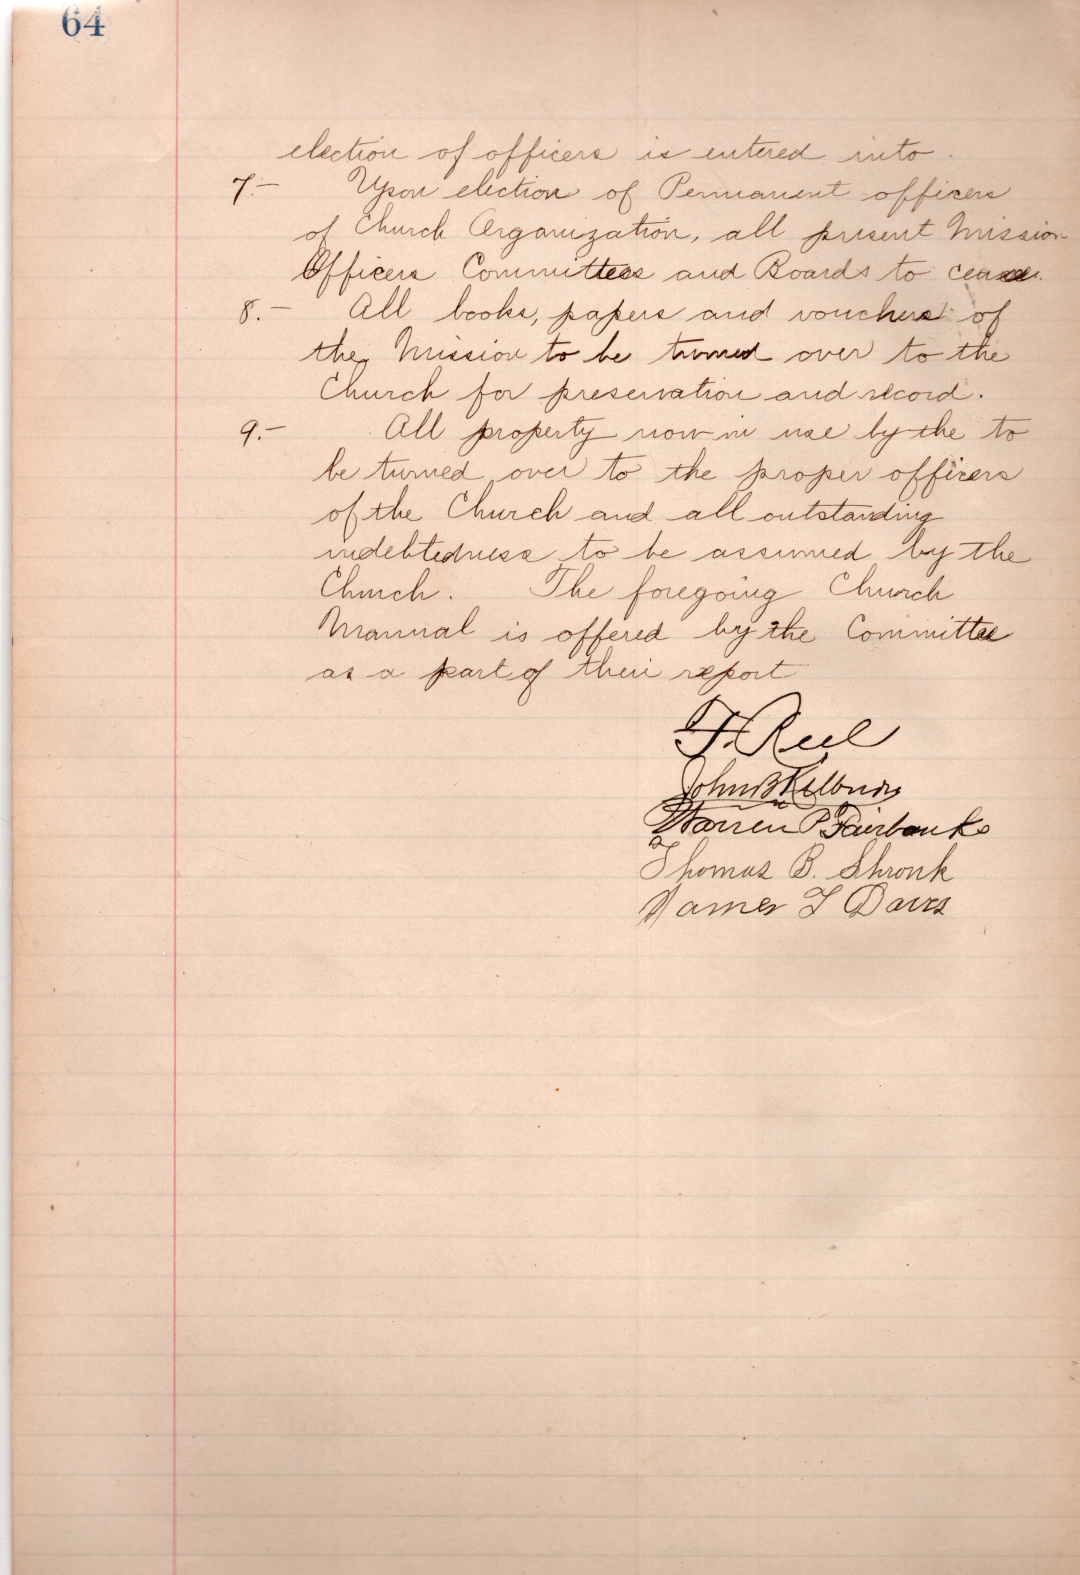 64
election of officers is entered into.
7.— Upon election of Permanent officers
of Church Organization, all present Mission
Officers Committees and Boards to cease.
8.— All books, papers and vouchers of
the Mission to be turned over to the
Church for preservation and record.
9.— All property now in use by the to
be turned over to the proper officers
of the Church and all outstanding
indebtedness to be assumed by the
Church. The foregoing Church
Manual is offered by the Committee
as a part of their report
F. Reel
John B
Warren P. Fairbanks
Thomas B. Shronk
James T Davis